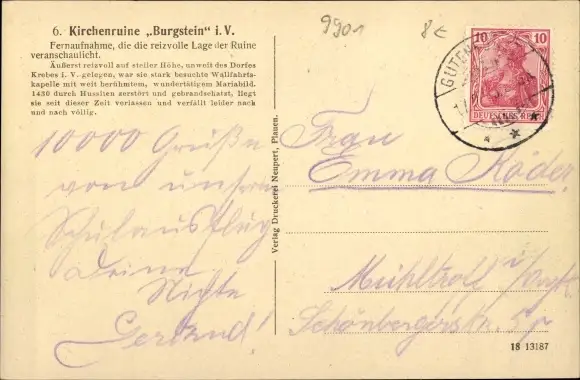 6. Kirchenruine „Burgstein" i. V.
Fernaufnahme, die die reizvolle Lage der Ruine
veranschaulicht.
Äußerst reizvoll auf steiler Höhe, unweit des Dorfes
Krebes i. V. gelegen, war sie stark besuchte Wallfahrts-
kapelle mit weit berühmtem, wundertätigem Mariabild.
1430 durch Hussiten zerstört und gebrandschatzt, liegt
sie seit dieser Zeit verlassen und verfällt leider nach
und nach völlig.
10000 Grüße
von unserm
Schulausflug
Deine
Nichte
Verlag Druckerei Neupert, Plauen.
9901
8€
10 10
DEUTSCHES REICH
GUTEN
Frau
Emma Röder
Mühltroff i/Vogtl.
Schönbergerstr.
18 13187